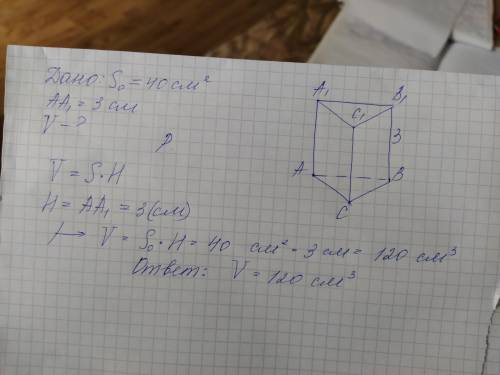 Дано: S₀ = 40 см²
AA₁ = 3 см
V - ?
V = S · H
H = AA₁ = 3 (см)
V = S₀ · H = 40 см² · 3 см = 120 см³
Ответ: V = 120 см³
A₁
B₁
C₁
3
A
B
C